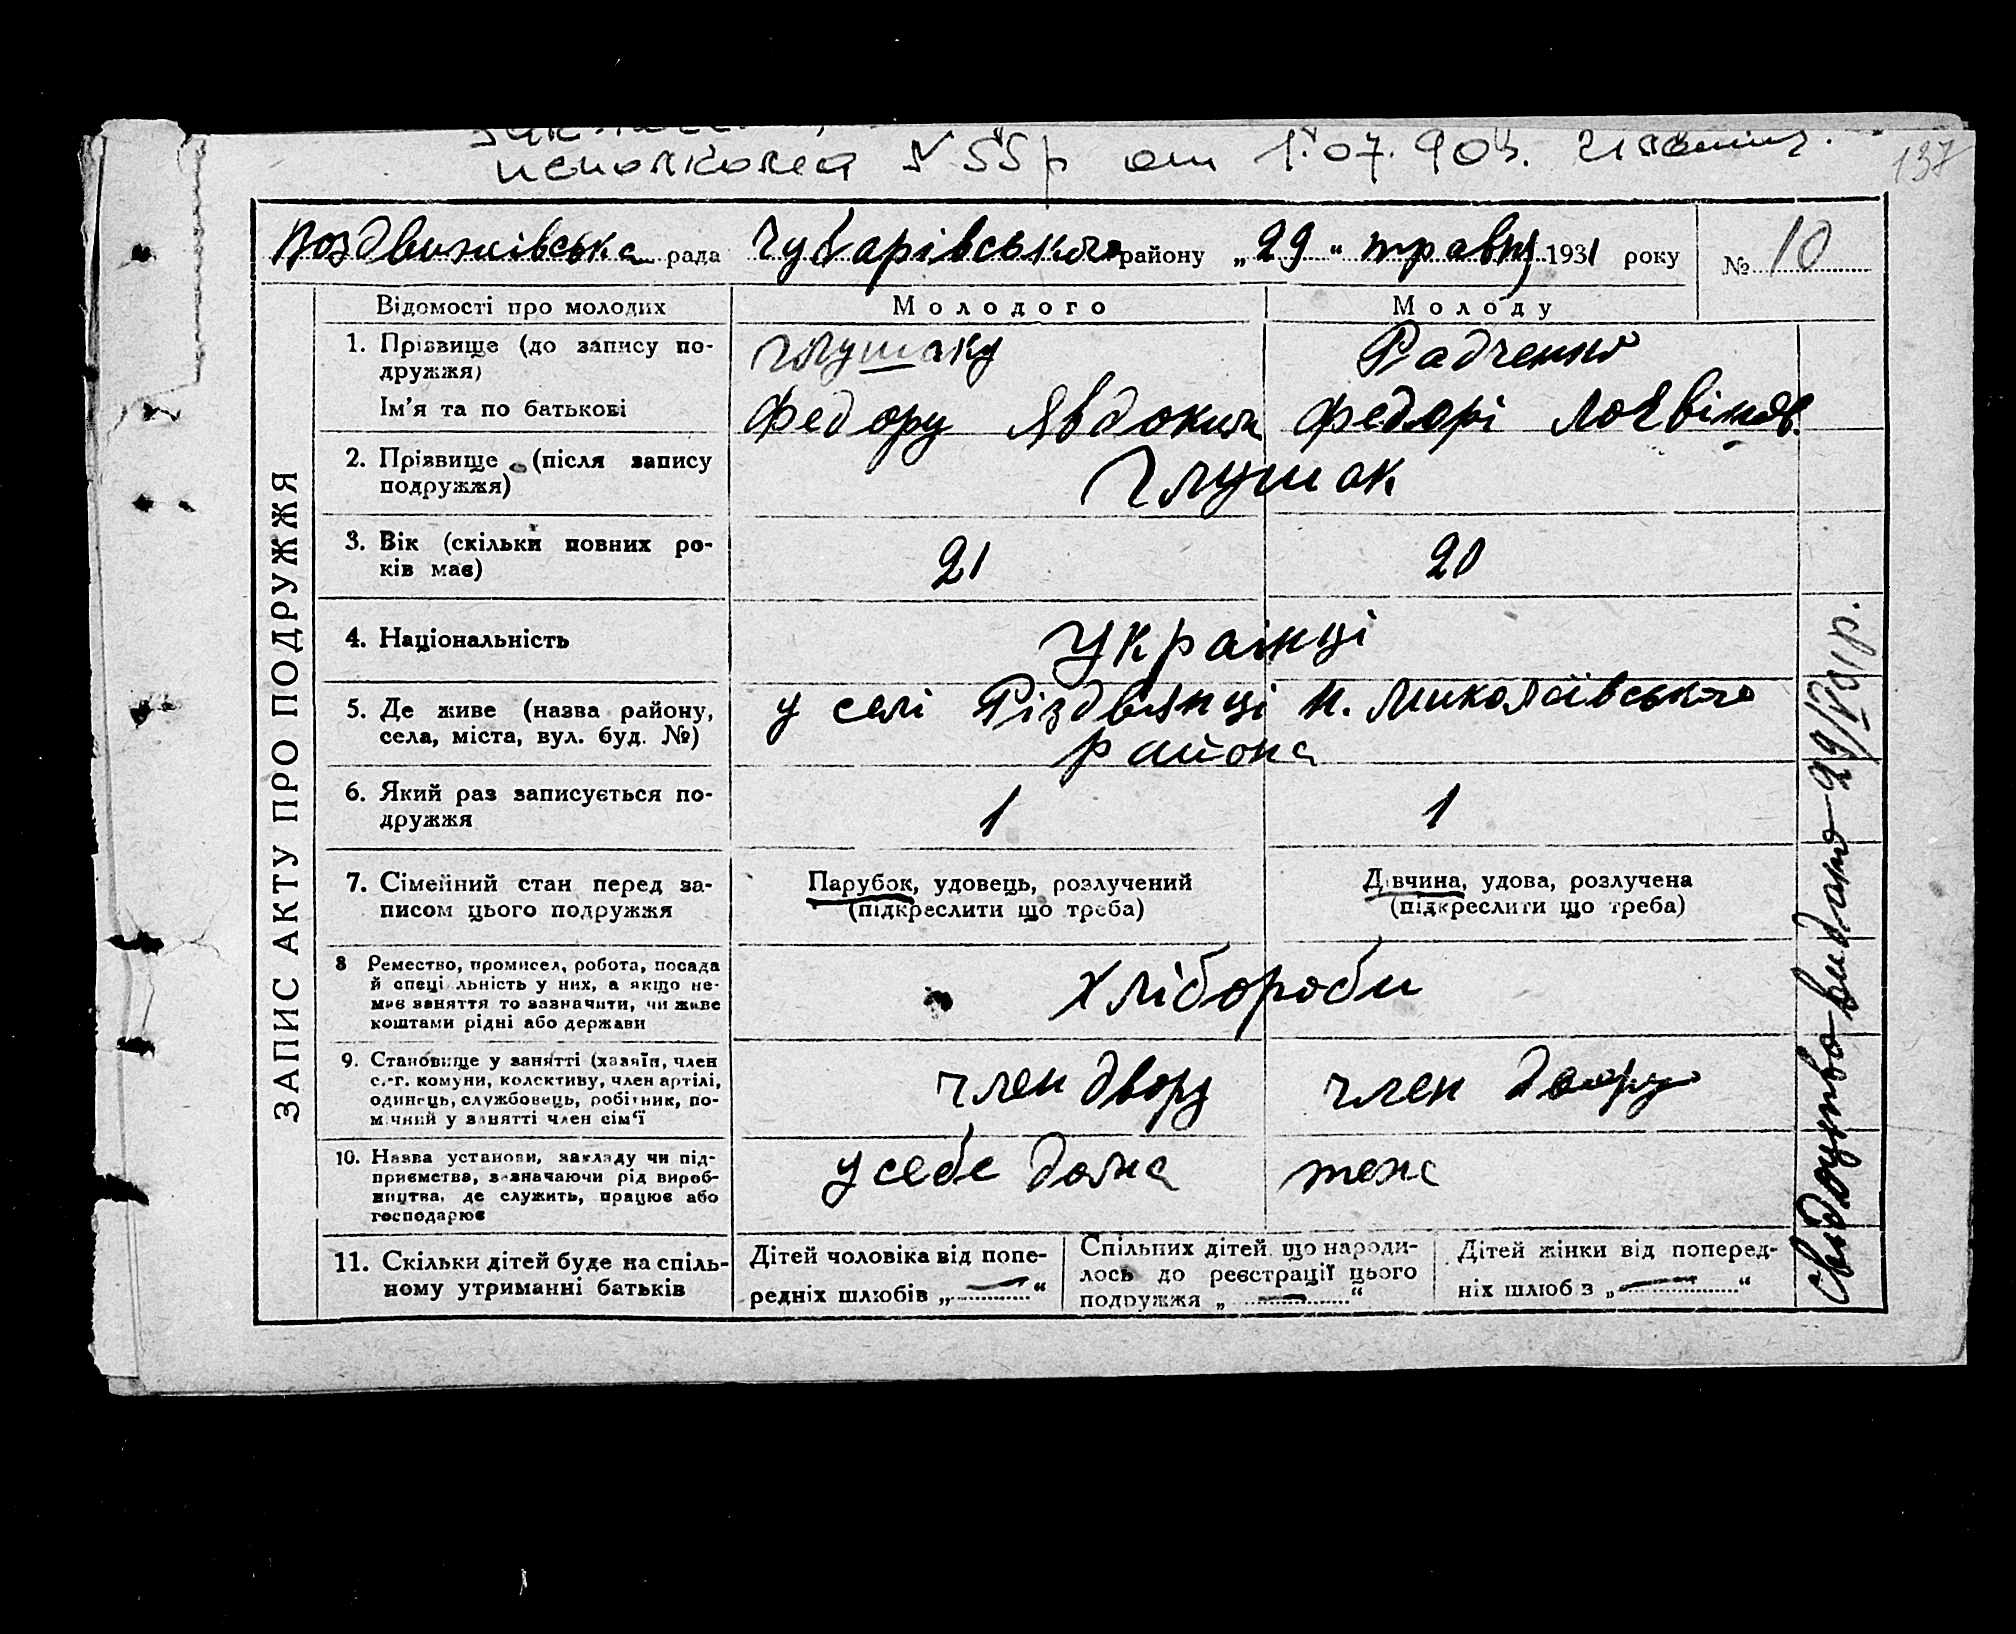 исполкома № 55р от 1.07.90г.
137
Воздвижівська рада Чубарівського району „29“ травня 1931 року № 10
ЗАПИС АКТУ ПРО ПОДРУЖЖЯ
Відомості про молодих Молодого Молоду
1. Прізвище (до запису по-
дружжя)
Глушаку Радченко
Ім'я та по батькові
Федору Явдоким Федорі
2. Прізвище (після запису
подружжя)
Глушак
3. Вік (скільки повних ро-
ків має)
21 20
4. Національність
Украінці
5. Де живе (назва району,
села, міста, вул. буд. №)
у селі Різдвянці н. Миколаівського
района
6. Який раз записується по-
дружжя
1 1
7. Сімейний стан перед за-
писом цього подружжя
Парубок, удовець, розлучений
(підкреслити що треба)
Дівчина, удова, розлучена
(підкреслити що треба)
8 Ремество, промисел, робота, посада
й спеціяльність у них, а якщо не-
має заняття то зазначити, чи живе
коштами рідні або держави
Хлібороби
9. Становище у занятті (хазяїн, член
с.-г. комуни, колективу, член артілі,
одинець, службовець, робітник, по-
мічний у занятті член сім'ї
член двору член двору
10. Назва установи, закладу чи під-
приємства, зазначаючи рід вироб-
ництва, де служить, працює або
господарює
у себе дома тоже
11. Скільки дітей буде на спіль-
ному утриманні батьків
Дітей чоловіка від попе-
редніх шлюбів „—“
Спільних дітей, що народи-
лось до реєстрації цього
подружжя „—“
Дітей жінки від поперед-
ніх шлюбів „—“
Свидоцтво видано 29/V 31 р.